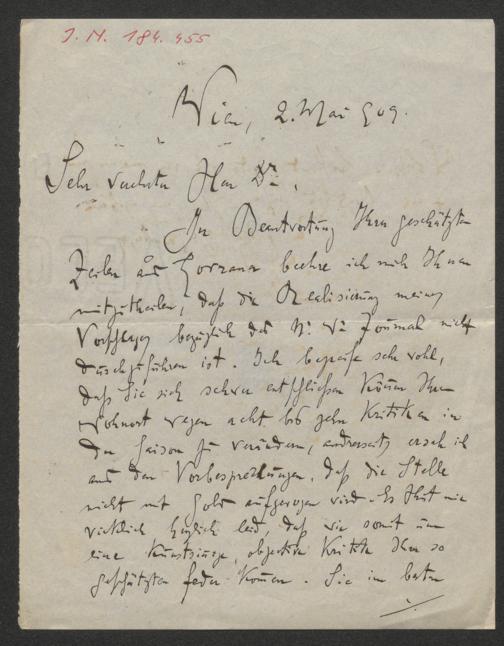 J. N. 184.455
Wien, 2. Mai 909.
Sehr verehrter Herr Dr.,
In Beantwortung Ihrer geschätzten
Zeilen aus beehre ich mich Ihnen
mitzutheilen, daß die Realisierung meines
Vorschlages bezüglich des N. W. Journal nicht
durchzuführen ist. Ich begreife sehr wohl,
daß Sie sich schwer entschließen können Ihren
Wohnort wegen acht bis zehn Kritiken in
der Saison zu verändern, anderseits ersah ich
aus den Vorbesprechungen, daß die Stelle
nicht mit Gold aufgewogen wird. Es thut mir
wirklich herzlich leid, daß wir somit um
eine kunstsinnige, objective Kritik Ihrer so
geschätzten Feder kommen. Sie im besten